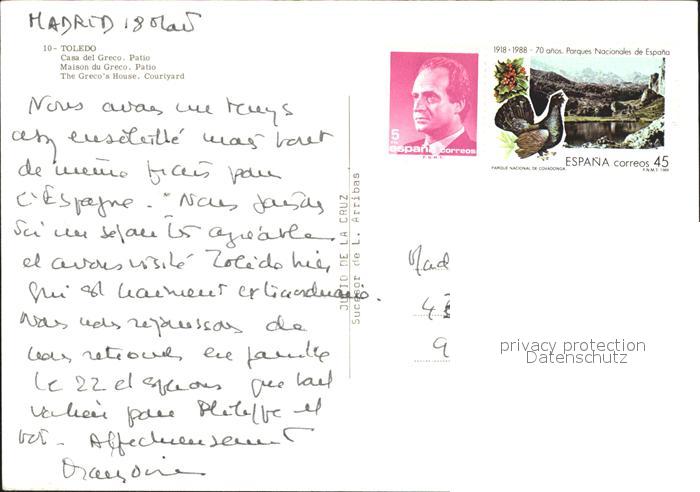 MADRID 18
10- TOLEDO
Casa del Greco. Patio
Maison du Greco. Patio
The Greco's House. Courtyard
Nous avons un temps
ensoleillé mais tout
de même frais pour
l'Espagne. Nous faisons
ici un séjour très agréable
et avons visité Tolédo hier
qui est vraiment extraordinaire.
Nous nous réjouissons de
nous retrouver en famille
le 22 et espérons que tout
va bien pour Philippe et
toi. Affectueusement
JULIO DE LA CRUZ
Sucesor de L. Arribas
5
PTA
españa correos
F.N.M.T.
1918 - 1988 - 70 años. Parques Nacionales de España
ESPAÑA correos 45
PARQUE NACIONAL DE COVADONGA
F.N.M.T. 1988
Mad
9
privacy protection
Datenschutz